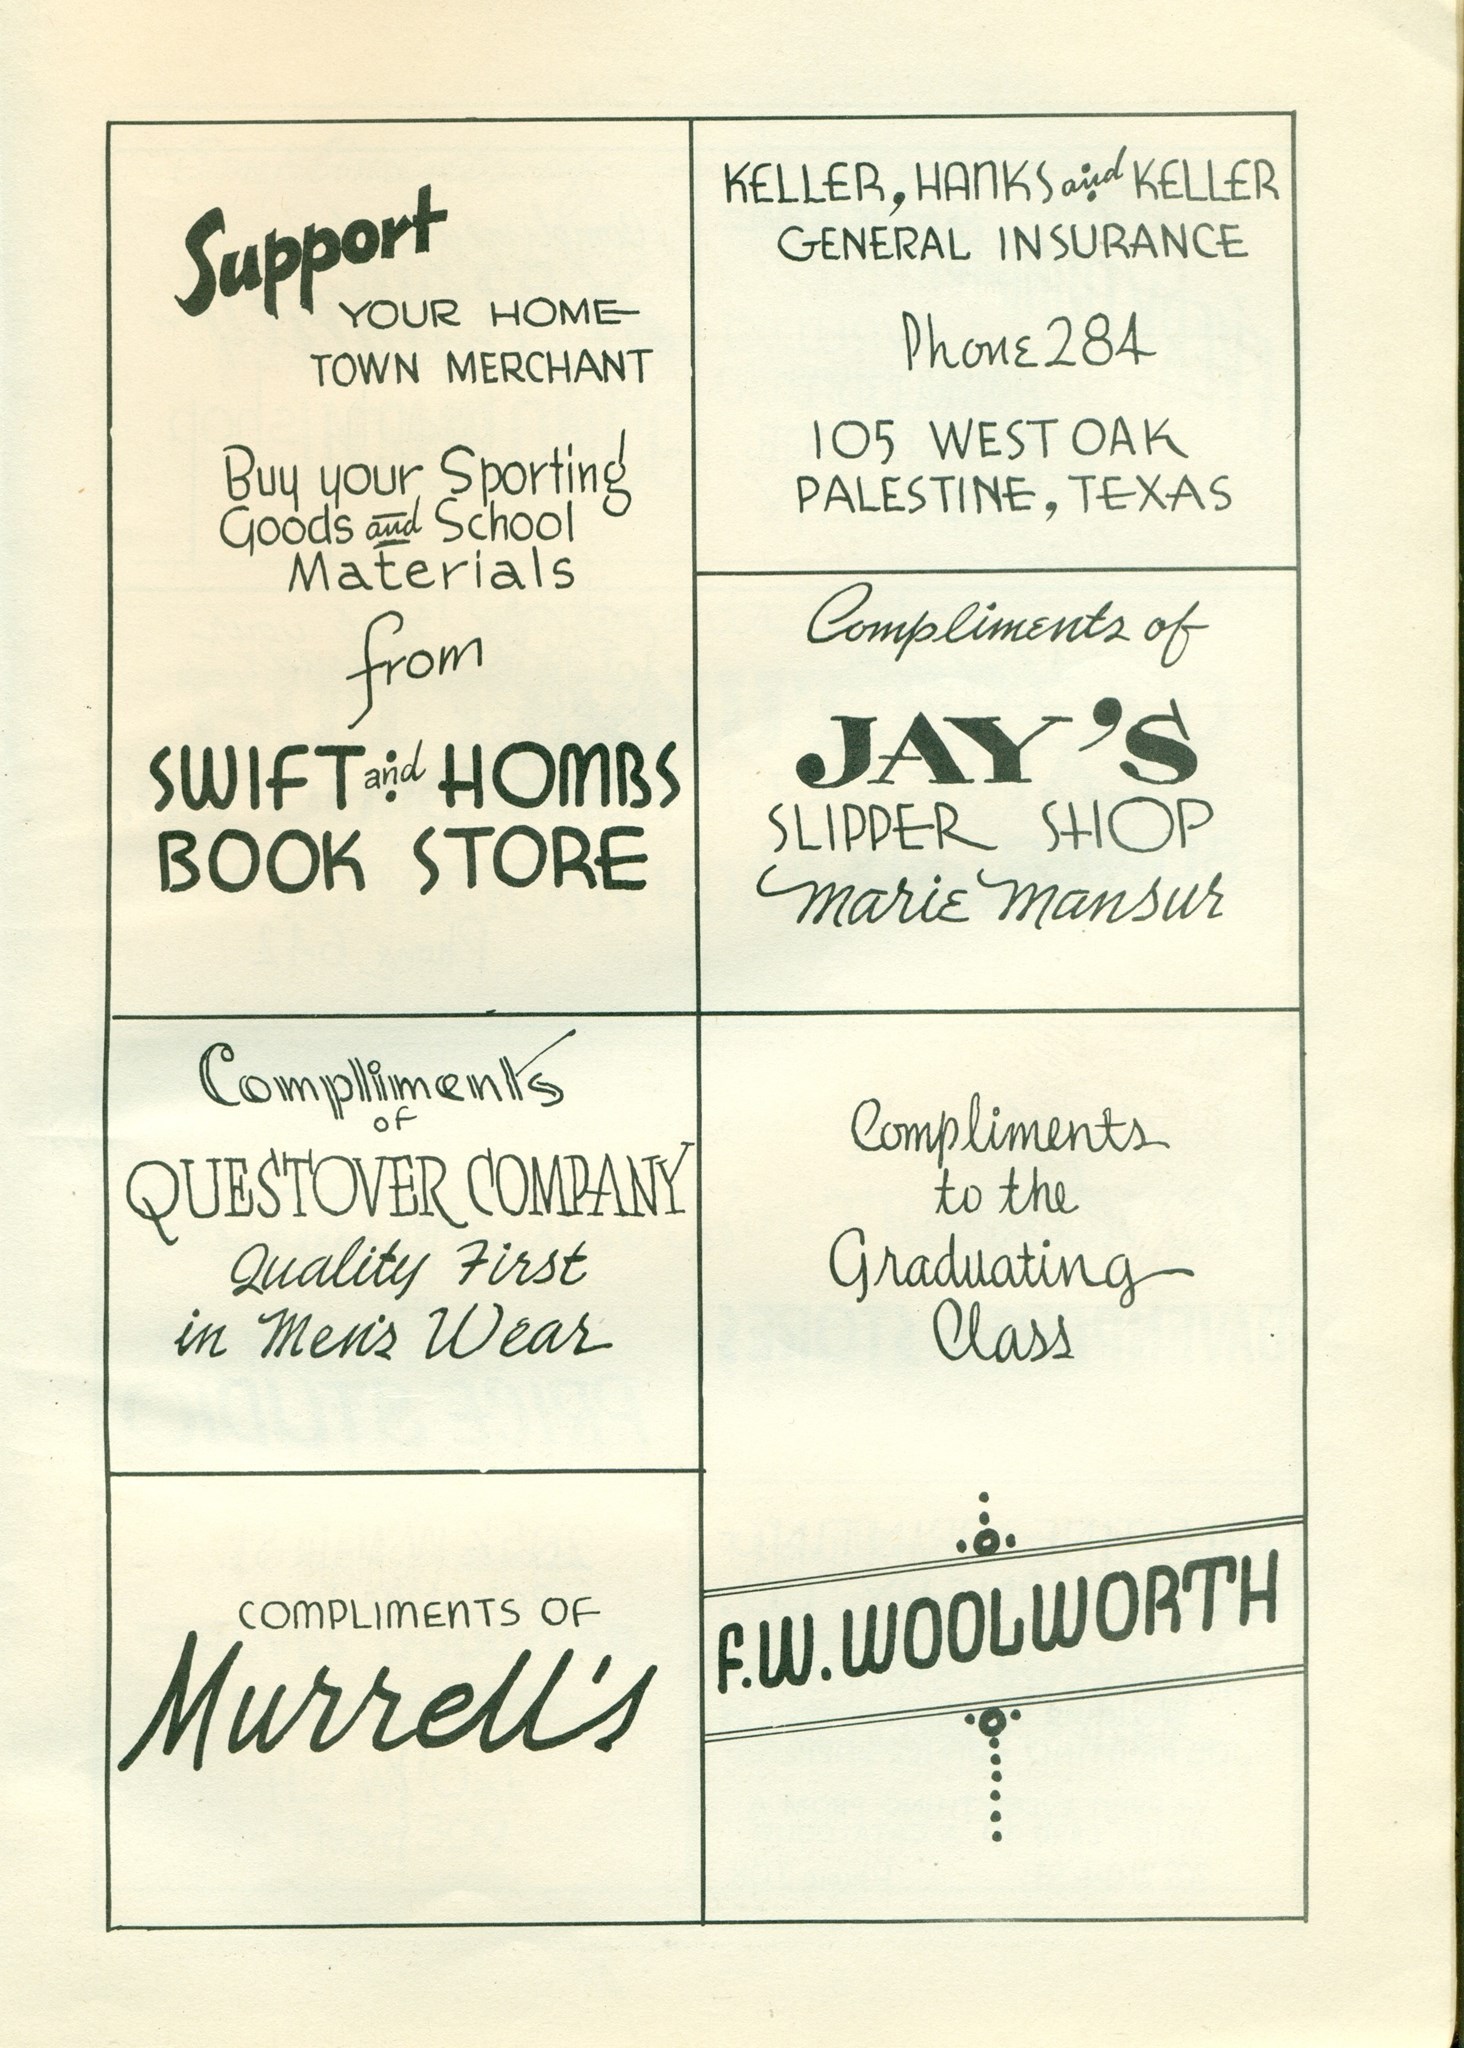 Support
YOUR HOME-
TOWN MERCHANT
Buy your Sporting
Goods and School
Materials
from
SWIFT and HOMBS
BOOK STORE
KELLER, HANKS and KELLER
GENERAL INSURANCE
Phone 284
105 WEST OAK
PALESTINE, TEXAS
Compliments of
JAY'S
SLIPPER SHOP
Marie Mansur
Compliments
OF
QUESTOVER COMPANY
Quality First
in Men's Wear
Compliments
to the
Graduating
Class
F.W. WOOLWORTH
COMPLIMENTS OF
Murrell's